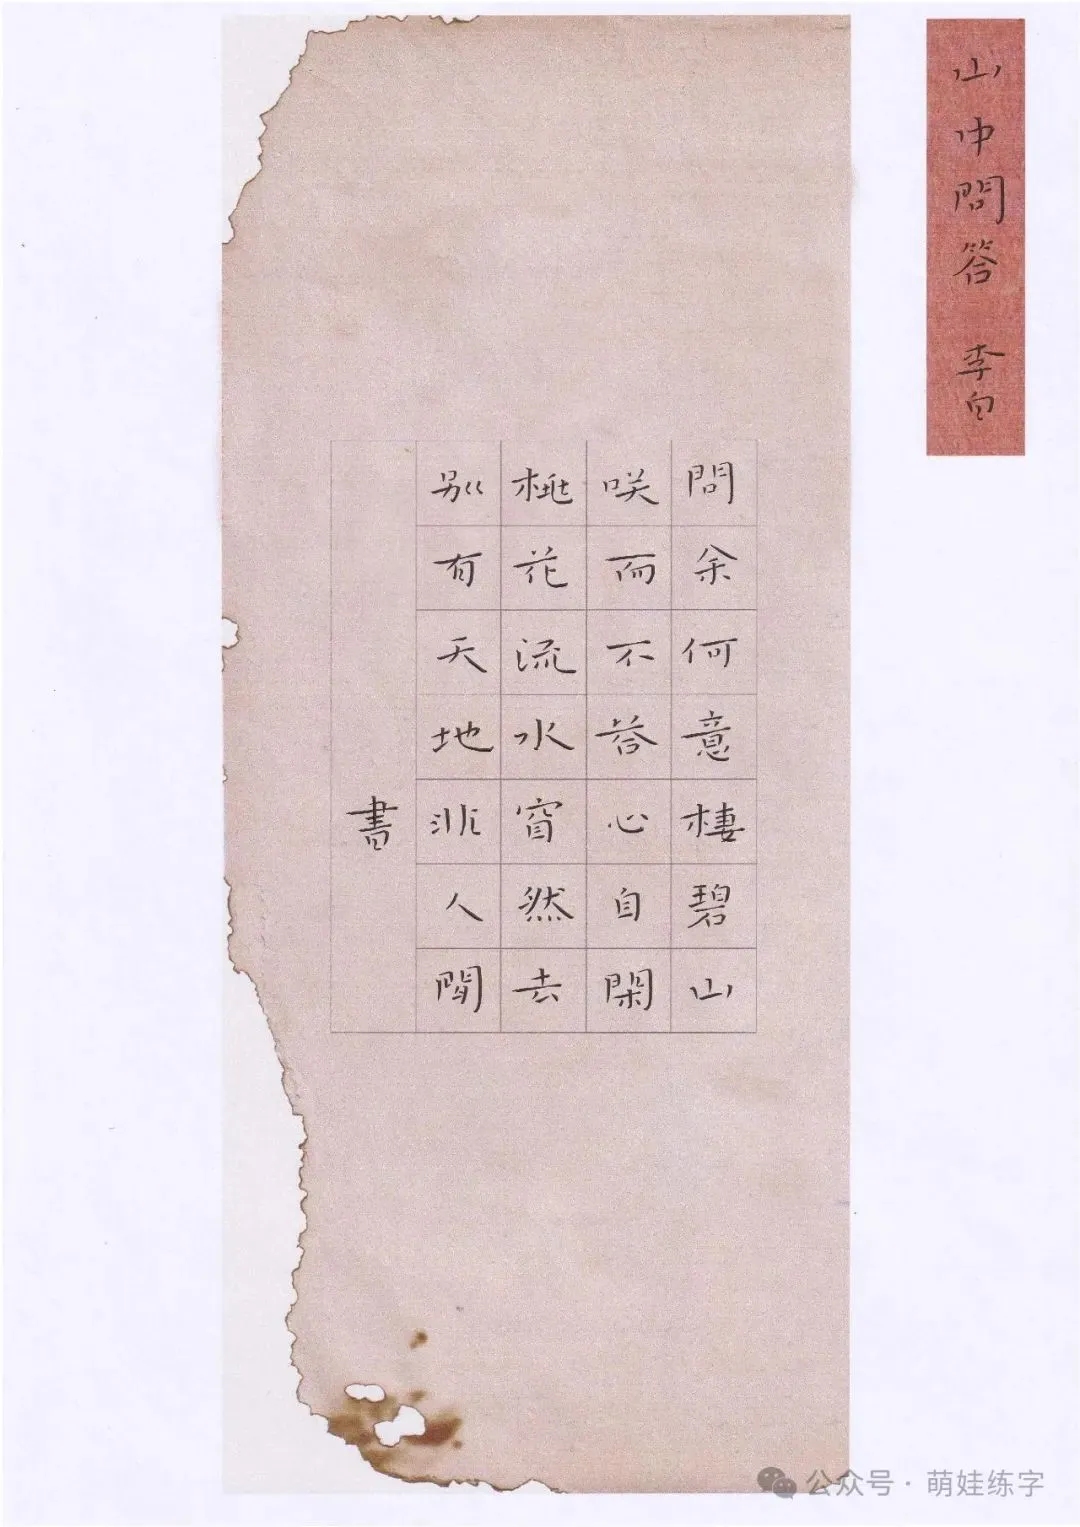 山中問答 李白
問余何意棲碧山
咲而不答心自閑
桃花流水窅然去
別有天地非人間
書
公众号·萌娃练字